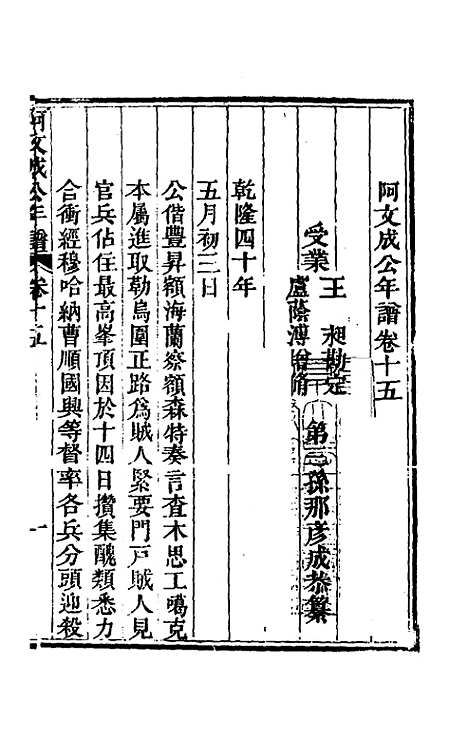 阿文成公年譜卷十五
第三孫那彥成恭纂
受業
王昶勘定
盧蔭溥增脩
乾隆四十年
五月初三日
公偕豐昇額海蘭察額森特奏言查木思工噶克
本屬進取勒烏圍正路為賊人緊要門戶賊人見
官兵佔住最高峯頂因於十四日攢集醜類悉力
合衝經穆哈納曹順國興等督率各兵分頭迎殺
阿文成公年譜 卷十五 一